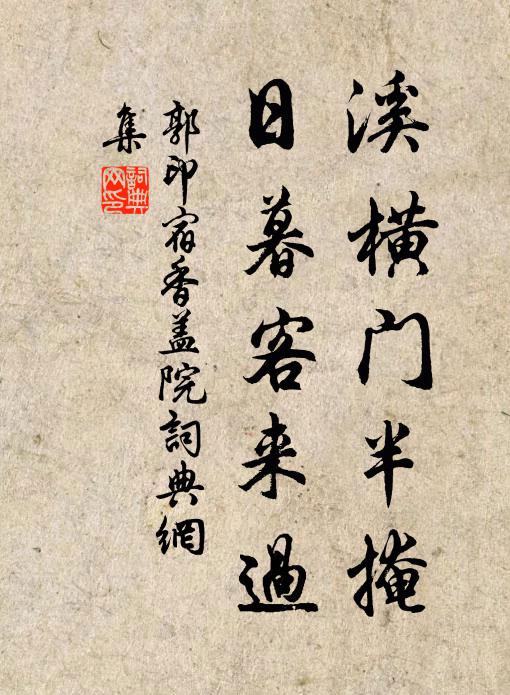 溪橫门半掩
日暮客来過
郭印宿香盖院詞典網
集
詞典
网印